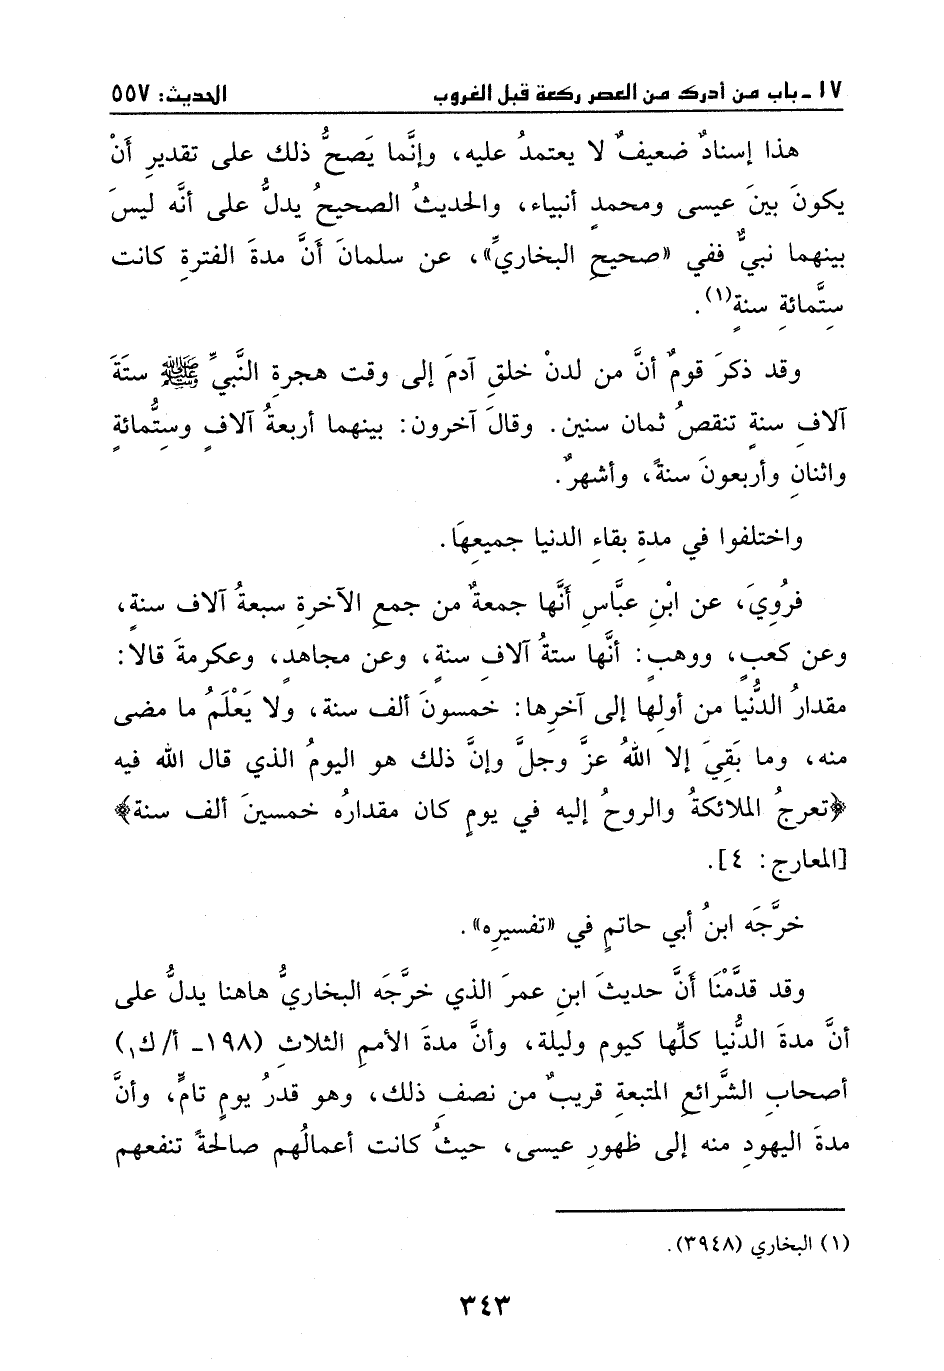 ١٧ - باب من أدرك من العصر ركعة قبل الغروب الحديث: ٥٥٧
هذا إسنادٌ ضعيفٌ لا يعتمدُ عليه، وإنَّما يَصحُّ ذلك على تقديرِ أنْ
يكونَ بينَ عيسى ومحمدٍ أنبياء، والحديثُ الصحيحُ يدلُّ على أنَّه ليسَ
بينهما نبيٌّ ففي «صحيحِ البخاريِّ»، عن سلمانَ أنَّ مدةَ الفترةِ كانت
ستَّمائةِ سنةٍ(١).
وقد ذكرَ قومٌ أنَّ من لدنْ خلقِ آدمَ إلى وقت هجرةِ النَّبيِّ ﷺ ستَةَ
آلافِ سنةٍ تنقصُ ثمان سنين. وقالَ آخرون: بينهما أربعةُ آلافٍ وستُّمائةٍ
واثنانِ وأربعونَ سنةً، وأشهرٌ.
واختلفوا في مدةِ بقاءِ الدنيا جميعِهَا.
فرُوِيَ، عن ابْنِ عبَّاسٍ أنَّها جمعةٌ من جمعِ الآخرةِ سبعةُ آلاف سنةٍ،
وعن كعبٍ، ووهبٍ: أنَّها ستةُ آلافِ سنةٍ، وعن مجاهدٍ، وعكرمةَ قالا:
مقدارُ الدُّنيا من أولِها إلى آخرِها: خمسونَ ألف سنة، ولا يَعْلَمُ ما مضى
منه، وما بَقِيَ إلا اللهُ عزَّ وجلَّ وإنَّ ذلك هو اليومُ الذي قال الله فيه
﴿تعرجُ الملائكةُ والروحُ إليه في يومٍ كان مقدارُه خمسينَ ألف سنة﴾
[المعارج: ٤].
خرَّجَه ابنُ أبي حاتمٍ في «تفسيرِه».
وقد قدَّمْنَا أنَّ حديثَ ابنِ عمرَ الذي خرَّجَه البخاريُّ هاهنا يدلُّ على
أنَّ مدةَ الدُّنيا كلِّها كيوم وليلة، وأنَّ مدةَ الأممِ الثلاثِ (١٩٨ـ أ/ك١)
أصحابِ الشَّرائعِ المتبعةِ قريبٌ من نصفِ ذلك، وهو قدرُ يومٍ تامٍّ، وأنَّ
مدةَ اليهودِ منه إلى ظهورِ عيسى، حيثُ كانت أعمالُهم صالحةً تنفعهم
(١) البخاري (٣٩٤٨).
٣٤٣